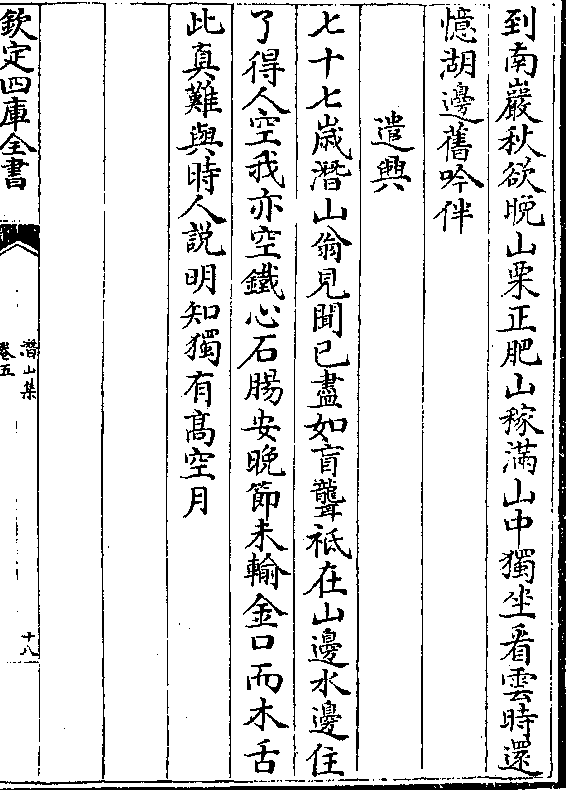 到南巖秋欲晩山栗正肥山稼滿山中獨坐看雲時還
憶湖邊舊吟伴
遣興
七十七歳潛山翁見聞已盡如盲聾袛在山邊水邊住
了得人空我亦空鐵心石腸安晩節未輸金口而木舌
此真難與時人説明知獨有髙空月
欽定四庫全書
潛山集
卷五
十八